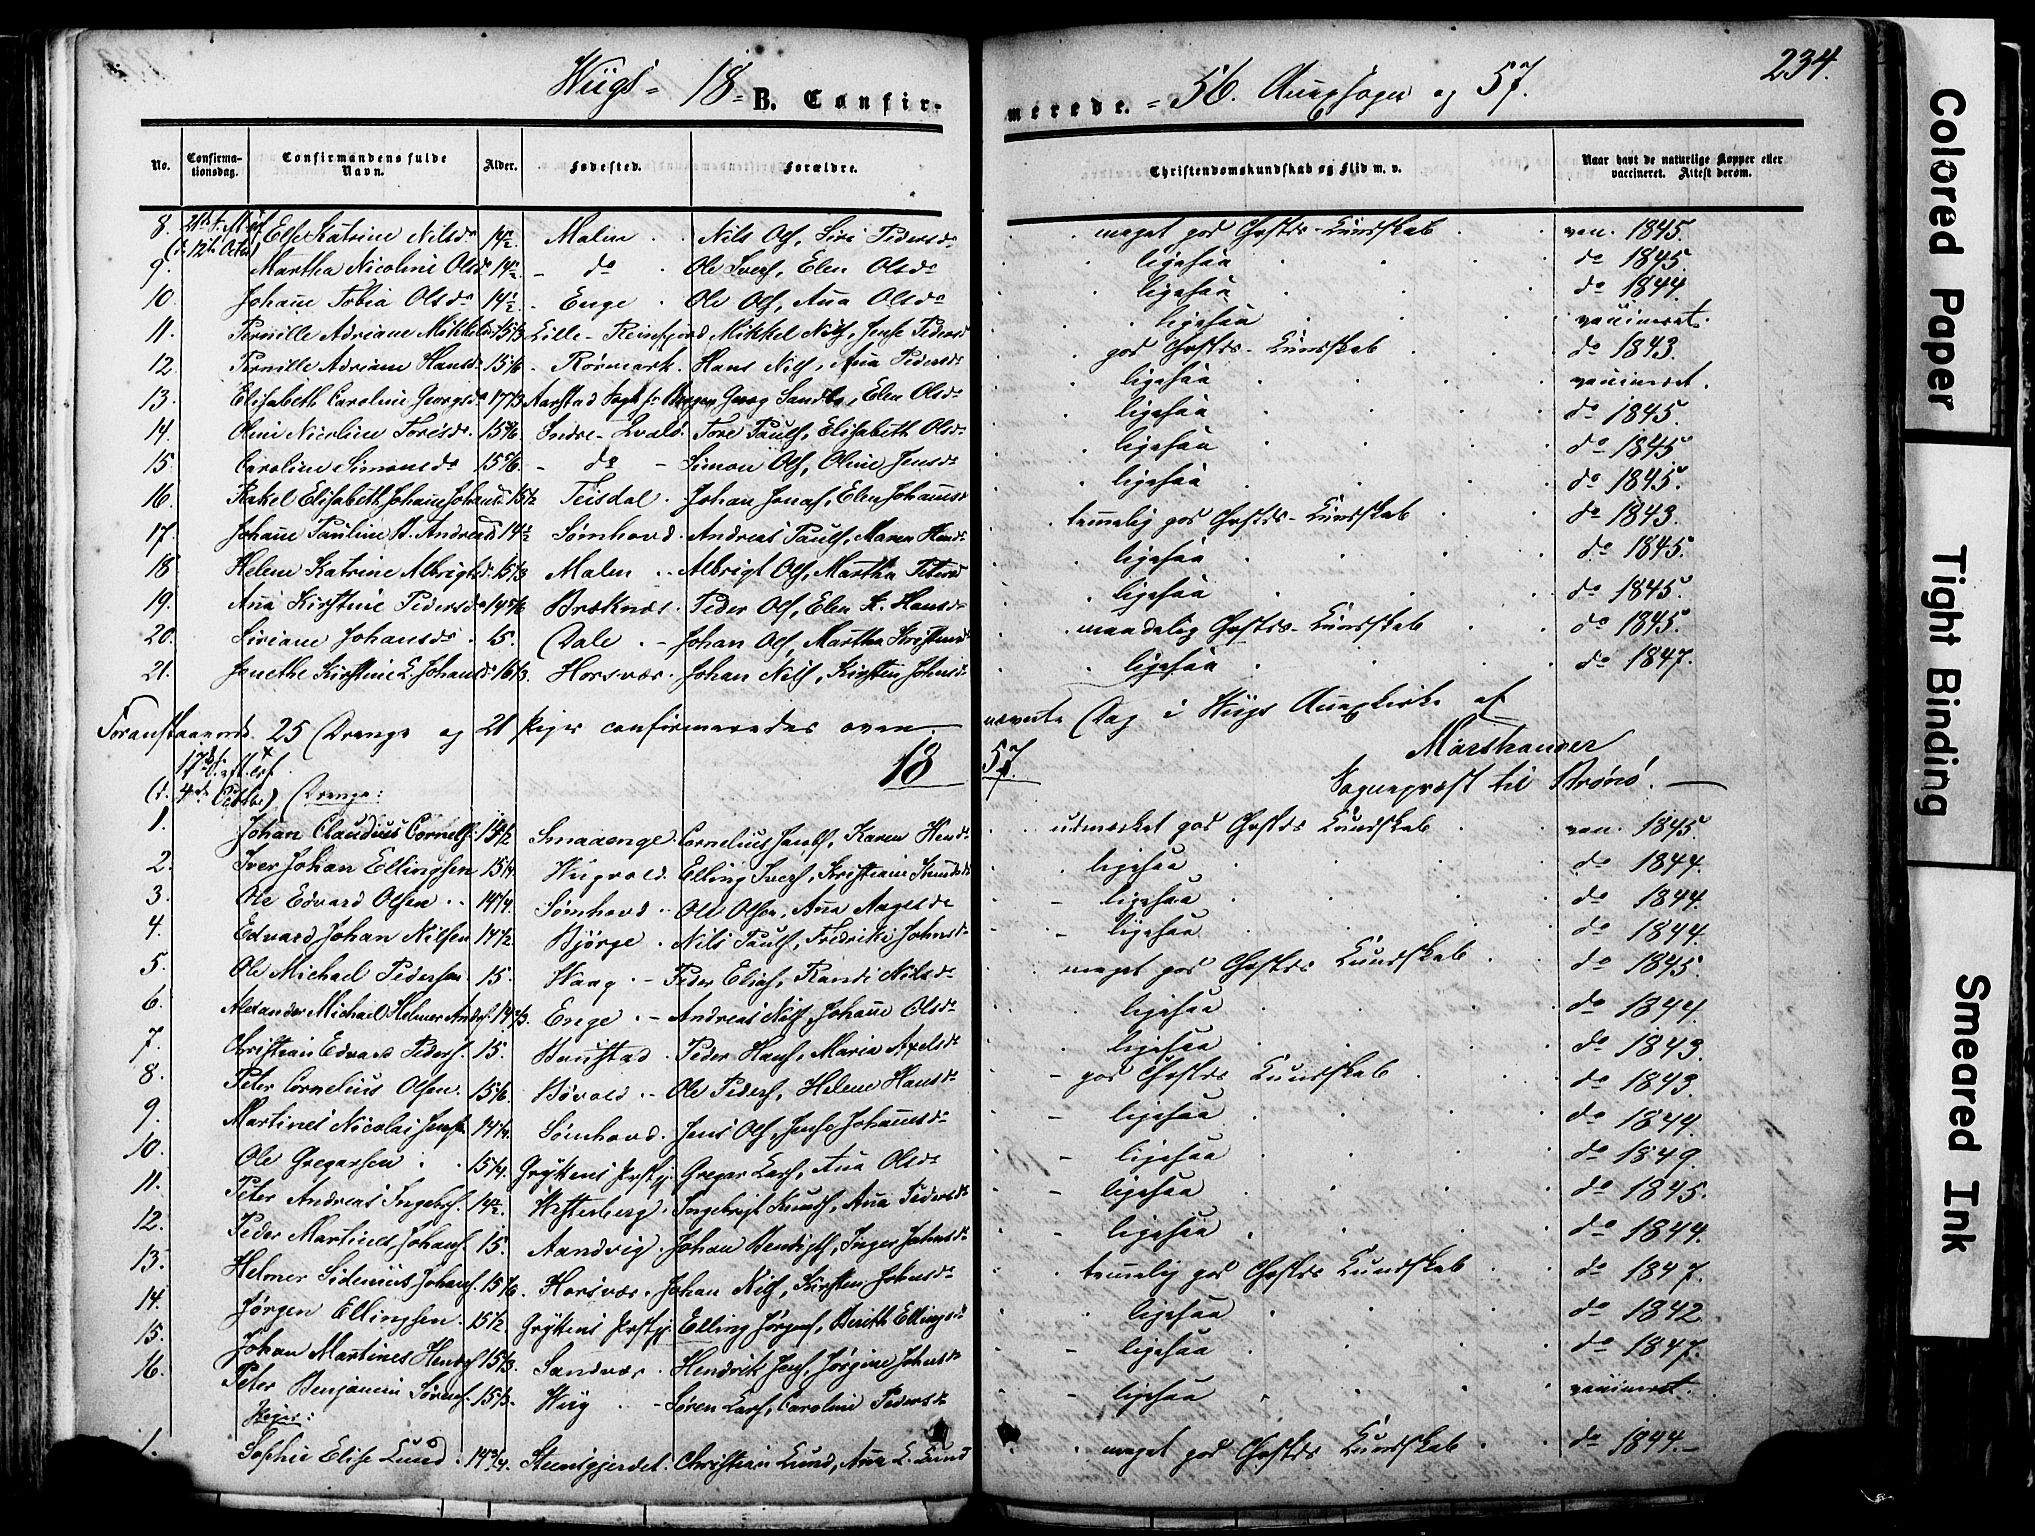 Wiigs - 18 - B. Confir-merede. - 56. Anexsogn og 57. 234.
No. Confirmationsdag. Confirmandens fulde Navn. Alder. Fødested. Forældre. Christendomskundskab og Flid m. v. Naar havt de naturlige Kopper eller vaccineret. Attest derom.
8. Else Katrine Nilsd. 14 1/2 Malm Nils Ols, Siri Pedersd. meget god Chrstds-Kundskab vac. 1845.
(d. 12te Octbr)
9. Martha Nicoline Olsd. 14 1/2 do Ole Ivers, Elen Olsd. ligesaa do 1845.
10. Johane Tobia Olsd. 14 1/2 Enge Ole Ols, Ana Olsd. ligesaa do 1844.
11. Pernille Adriane Mikkelsd. 15 1/3 Lille-Reinfjord Mikkel Nils, Jense Pedersd. ligesaa vaccineret.
12. Pernille Adriane Hansd. 15 1/6 Rørmark. Hans Nils, Ana Pedersd. god Chrstds-Kundskab do 1843.
13. Elisabeth Caroline Georgsd. Georg Sandb., Elen Olsd. ligesaa vaccineret.
14. Oline Nicoline Toresd. 15 Indre- Tore Pauls, Elisabeth Olsd. ligesaa do 1845.
15. Caroline Simonsd. 15 do - Simon Ols, Oline Jensd. ligesaa do 1845
16. Rakel Elisabeth Johane Johansd. 15 1/2 Teisdal. Johan Jonas, Elen Johansd. ligesaa do 1845.
17. Johane Pauline B. Andreasd. 14 1/2 Sømhovd. Andreas Pauls, Maren Hansd. temelig god Chrstds-Kundskab do 1843.
18. Helene Katrine Albrigtsd. 15 1/3 Malm Albrigt Ols, Martha Petersd. ligesaa do 1845.
19. Ana Kirstine Pedersd. 14 Bræknæs. Peder Ols, Elen K. Hansd. ligesaa do 1845.
20. Siriane Johansd. 15. Dale. - Johan Ols, Martha Kristensd. maadelig Chrstds-Kundskab do 1845.
21. Jonethe Kirstine L. Johansd. 16 1/3. Horsvær. Johan Nils, Kirsten Johnsd. ligesaa do 1847.
Foranstaaende 25 Drenge og 21 Piger confirmeredes oven nævnte Dag i Wiigs Anexkirke af
Marshauser
Sognepræst til Brønø.
18 57.
17de S. eft. Trf.
(d. 4de Octbr), Drenge:
1. Johan Claudius Cornels. 15 1/2 Smaaenge. Cornelius Jacobs, Karen Hansd. udmærket god Chrstds Kundskab vac. 1845.
2. Iver Johan Ellingsen 15 1/4. Wiigvold. Elling Ivers, Kristiane Knudsd. ligesaa do 1844.
3. Ole Edvard Olsen 14 3/4. Sømhovd. Ole Olsen, Ana Aagesd. ligesaa do 1844.
4. Edvard Johan Nilsen 14 1/2 Bjørge. Nils Pauls, Fredrikke Johnsd. ligesaa do 1844.
5. Ole Michael Pedersen 15. Waag. - Peder Elias, Randi Nilsd. meget god Chrstds Kundskab do 1845.
6. Alexander Michael Helmer Andr. 14 2/3. Enge. - Andreas Nils, Johane Olsd. ligesaa do 1844.
7. Christian Edvard Peders. 15. Baustad. Peder Hans, Maria Axelsd. ligesaa do 1843.
8. Peter Cornelius Olsen. 15 1/6. Bøvold. - Ole Peders, Helene Hansd. god Chrstds Kundskab do 1843.
9. Martines Nicolai Jens. 14 3/4. Sømhovd. Jens Ols, Jense Johansd. ligesaa do 1844.
10. Ole Gregarsen 15 1/4. Gryttens Prstgj. Gregar Lars, Ana Olsd. ligesaa do 1849.
11. Peter Andreas Ingebr. 14 1/2. Westerberg. Ingebrigt Knuds, Ana Pedersd. ligesaa do 1845.
12. Peder Martines Johans. 15. Aandvig. Johan Bendigts, Inger Johnsd. ligesaa do 1844.
13. Helmer Sidenius Johans. 15 1/6. Horsvær. Johan Nils, Kirsten Johnsd. temelig god Chrstds Kundskab do 1847.
14. Jørgen Ellingsen. 15 1/2. Gryttens Prstgj. Elling Jørgens, Berith Ellingsd. ligesaa do 1842.
15. Johan Martines Hendr. 15 2/3. Sandvær. Hendrik Jens, Jørgine Johnsd. ligesaa do 1847.
16. Peter Benjamin Sørens. 15 1/3. Wiig - Søren Lars, Caroline Pedersd. ligesaa vaccineret.
Piger:
1. Sophie Elise Lund. 14 3/4. Steensgjerdet. Christian Lund, Ana L. Lund meget god Chrstds Kundskab do 1844.
Colored Paper
Tight Binding
Smeared Ink